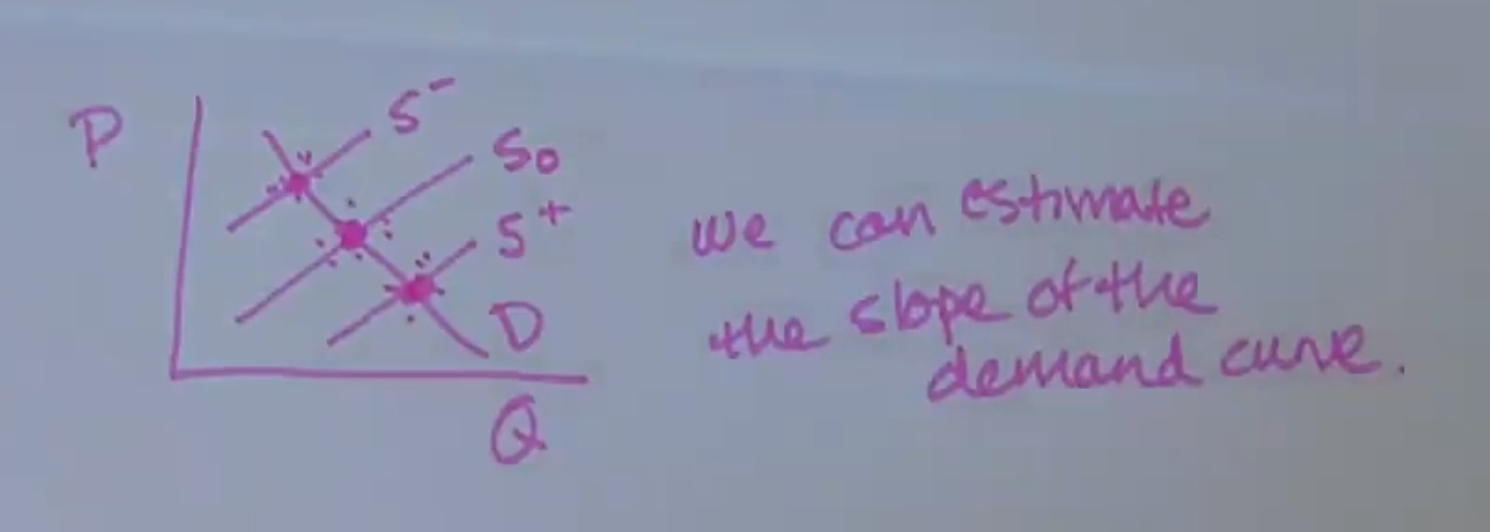 P
S⁻
S₀
S⁺
D
Q
we can estimate
the slope of the
demand curve.